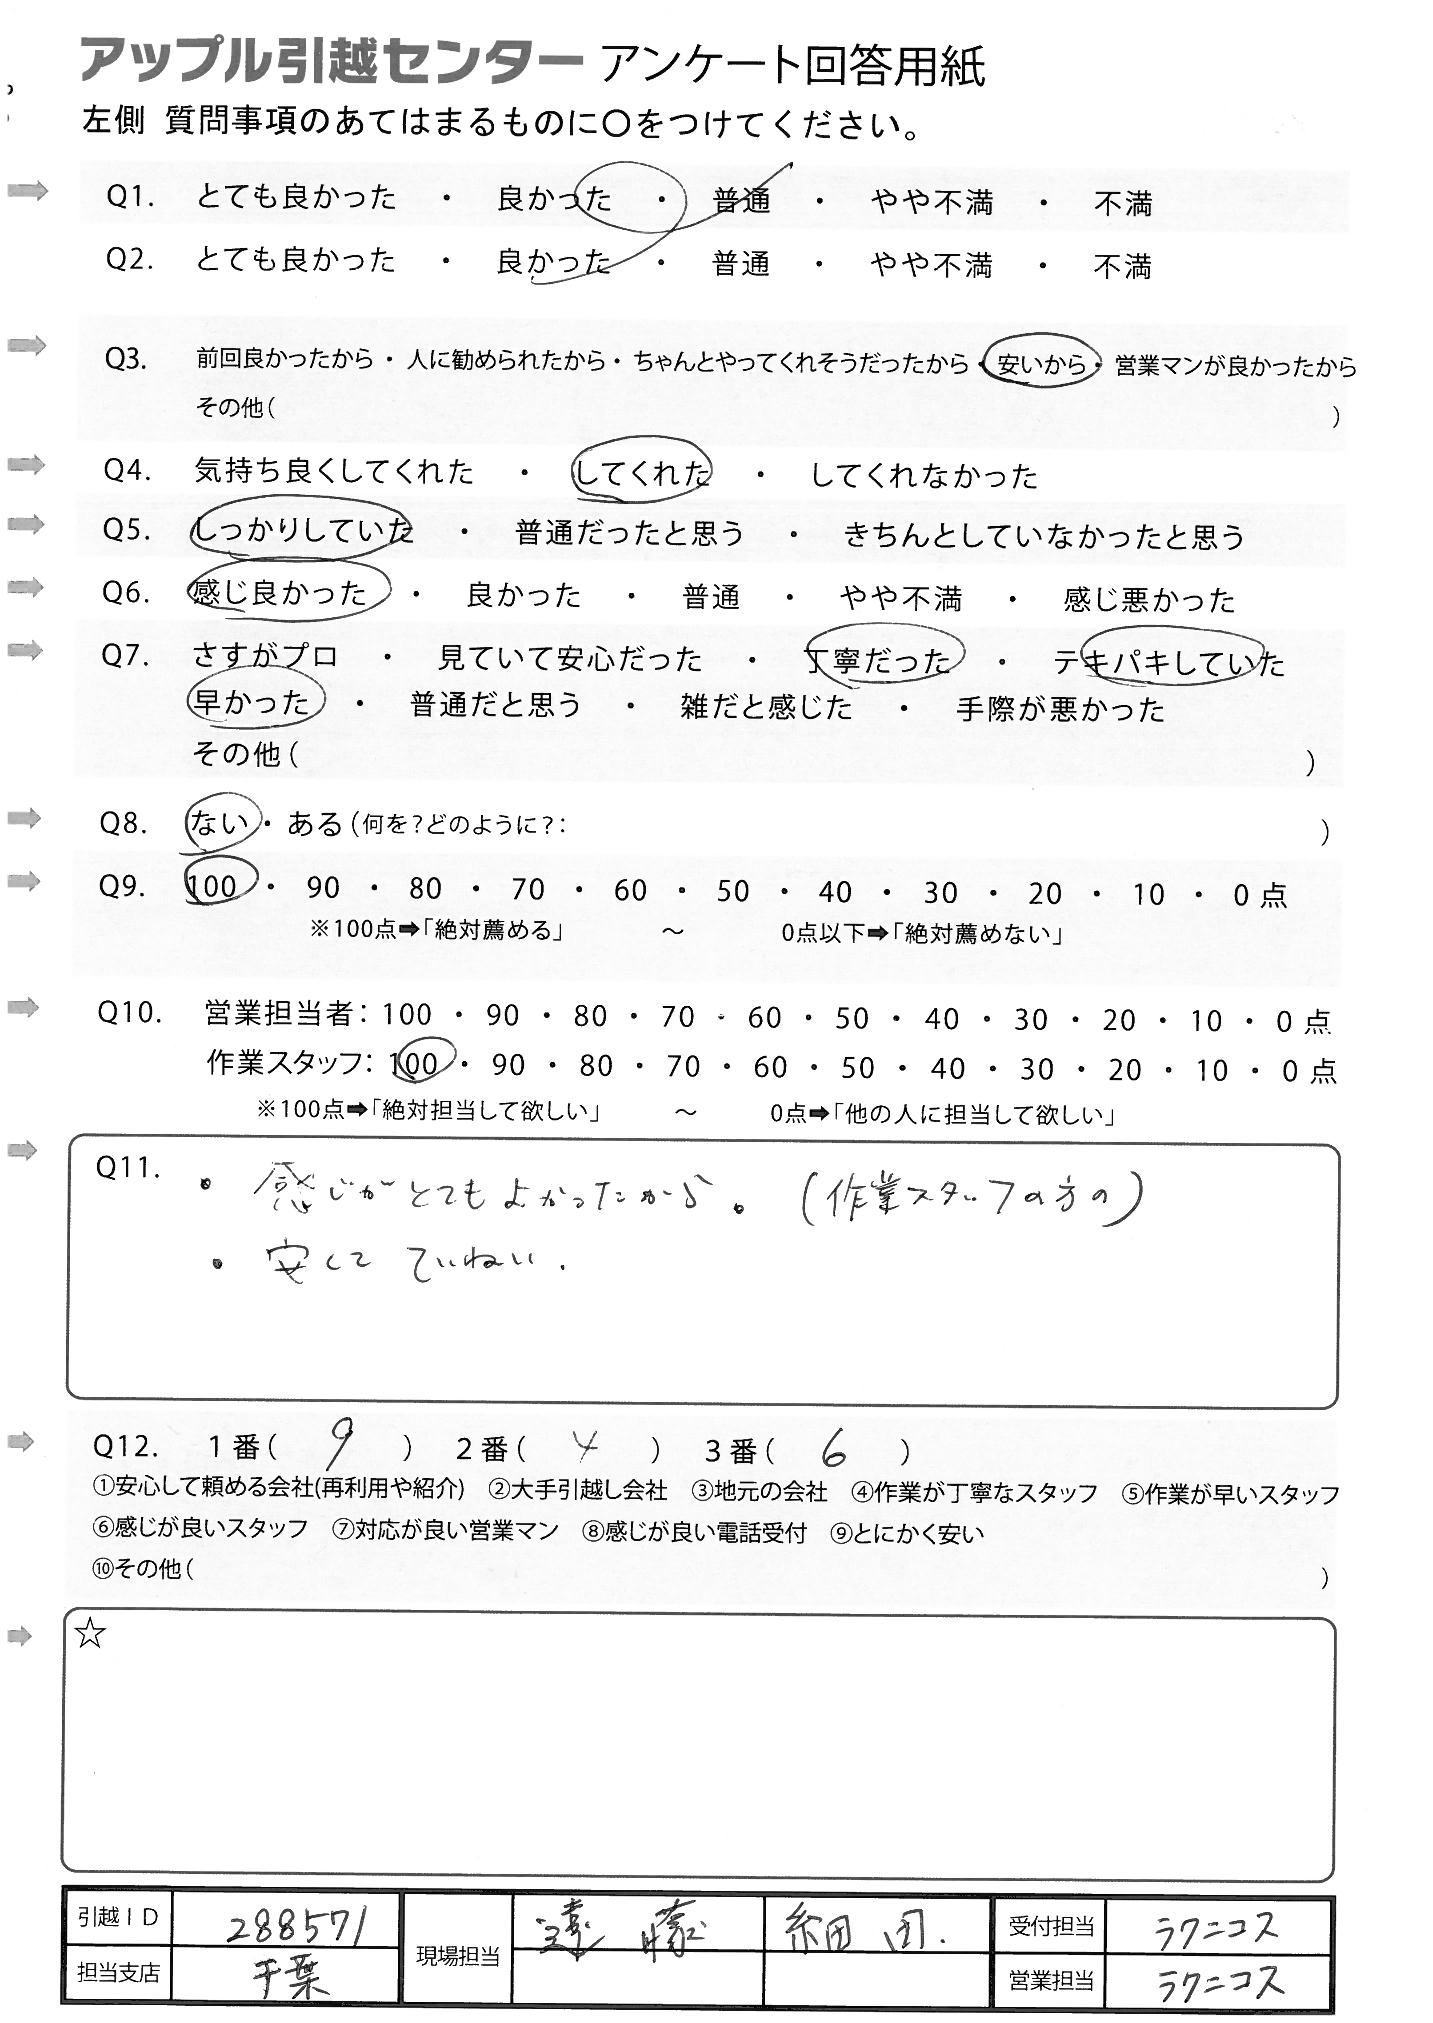 アップル引越センター アンケート回答用紙
左側 質問事項のあてはまるものに○をつけてください。
Q1. とても良かった ・ 良かった ・ 普通 ・ やや不満 ・ 不満
Q2. とても良かった ・ 良かった ・ 普通 ・ やや不満 ・ 不満
Q3. 前回良かったから ・ 人に勧められたから ・ ちゃんとやってくれそうだったから ・ 安いから ・ 営業マンが良かったから
その他( )
Q4. 気持ち良くしてくれた ・ してくれた ・ してくれなかった
Q5. しっかりしていた ・ 普通だったと思う ・ きちんとしていなかったと思う
Q6. 感じ良かった ・ 良かった ・ 普通 ・ やや不満 ・ 感じ悪かった
Q7. さすがプロ ・ 見ていて安心だった ・ 丁寧だった ・ テキパキしていた
早かった ・ 普通だと思う ・ 雑だと感じた ・ 手際が悪かった
その他( )
Q8. ない ・ ある(何を?どのように?: )
Q9. 100 ・ 90 ・ 80 ・ 70 ・ 60 ・ 50 ・ 40 ・ 30 ・ 20 ・ 10 ・ 0 点
※100点➡「絶対薦める」 ～ 0点以下➡「絶対薦めない」
Q10. 営業担当者: 100 ・ 90 ・ 80 ・ 70 ・ 60 ・ 50 ・ 40 ・ 30 ・ 20 ・ 10 ・ 0 点
作業スタッフ: 100 ・ 90 ・ 80 ・ 70 ・ 60 ・ 50 ・ 40 ・ 30 ・ 20 ・ 10 ・ 0 点
※100点➡「絶対担当して欲しい」 ～ 0点➡「他の人に担当して欲しい」
Q11. ・ 感じがとてもよかったから。 (作業スタッフの方の)
・ 安くて ていねい.
Q12. 1番( 9 ) 2番( 4 ) 3番( 6 )
①安心して頼める会社(再利用や紹介) ②大手引越し会社 ③地元の会社 ④作業が丁寧なスタッフ ⑤作業が早いスタッフ
⑥感じが良いスタッフ ⑦対応が良い営業マン ⑧感じが良い電話受付 ⑨とにかく安い
⑩その他( )
☆
引越ID 288571 現場担当 遠藤 細田. 受付担当 ラクニコス
担当支店 千葉 営業担当 ラクニコス